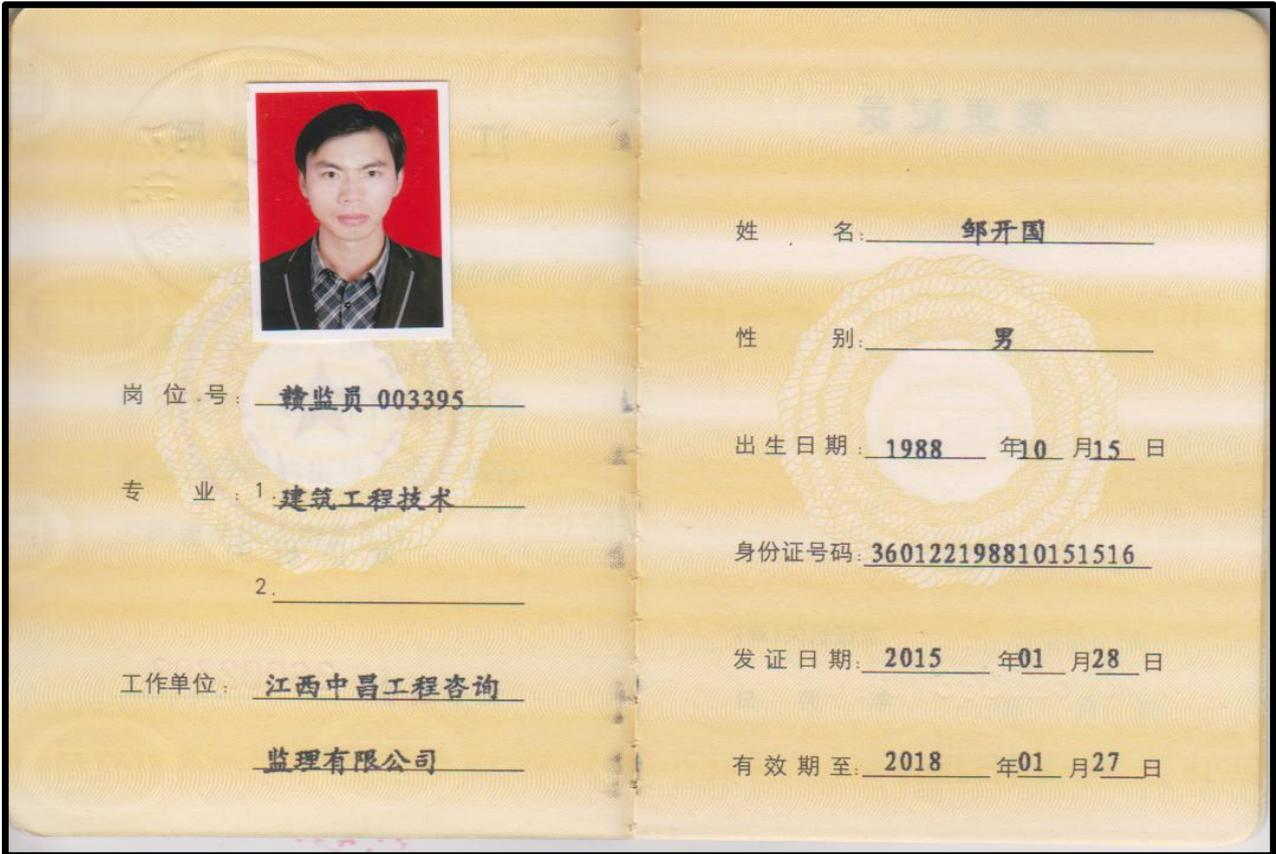 岗位号: 赣监员 003395
专业: 1. 建筑工程技术
2.
工作单位: 江西中昌工程咨询
监理有限公司
姓名: 邹开国
性别: 男
出生日期: 1988 年10 月15 日
身份证号码: 360122198810151516
发证日期: 2015 年01 月28 日
有效期至: 2018 年01 月27 日